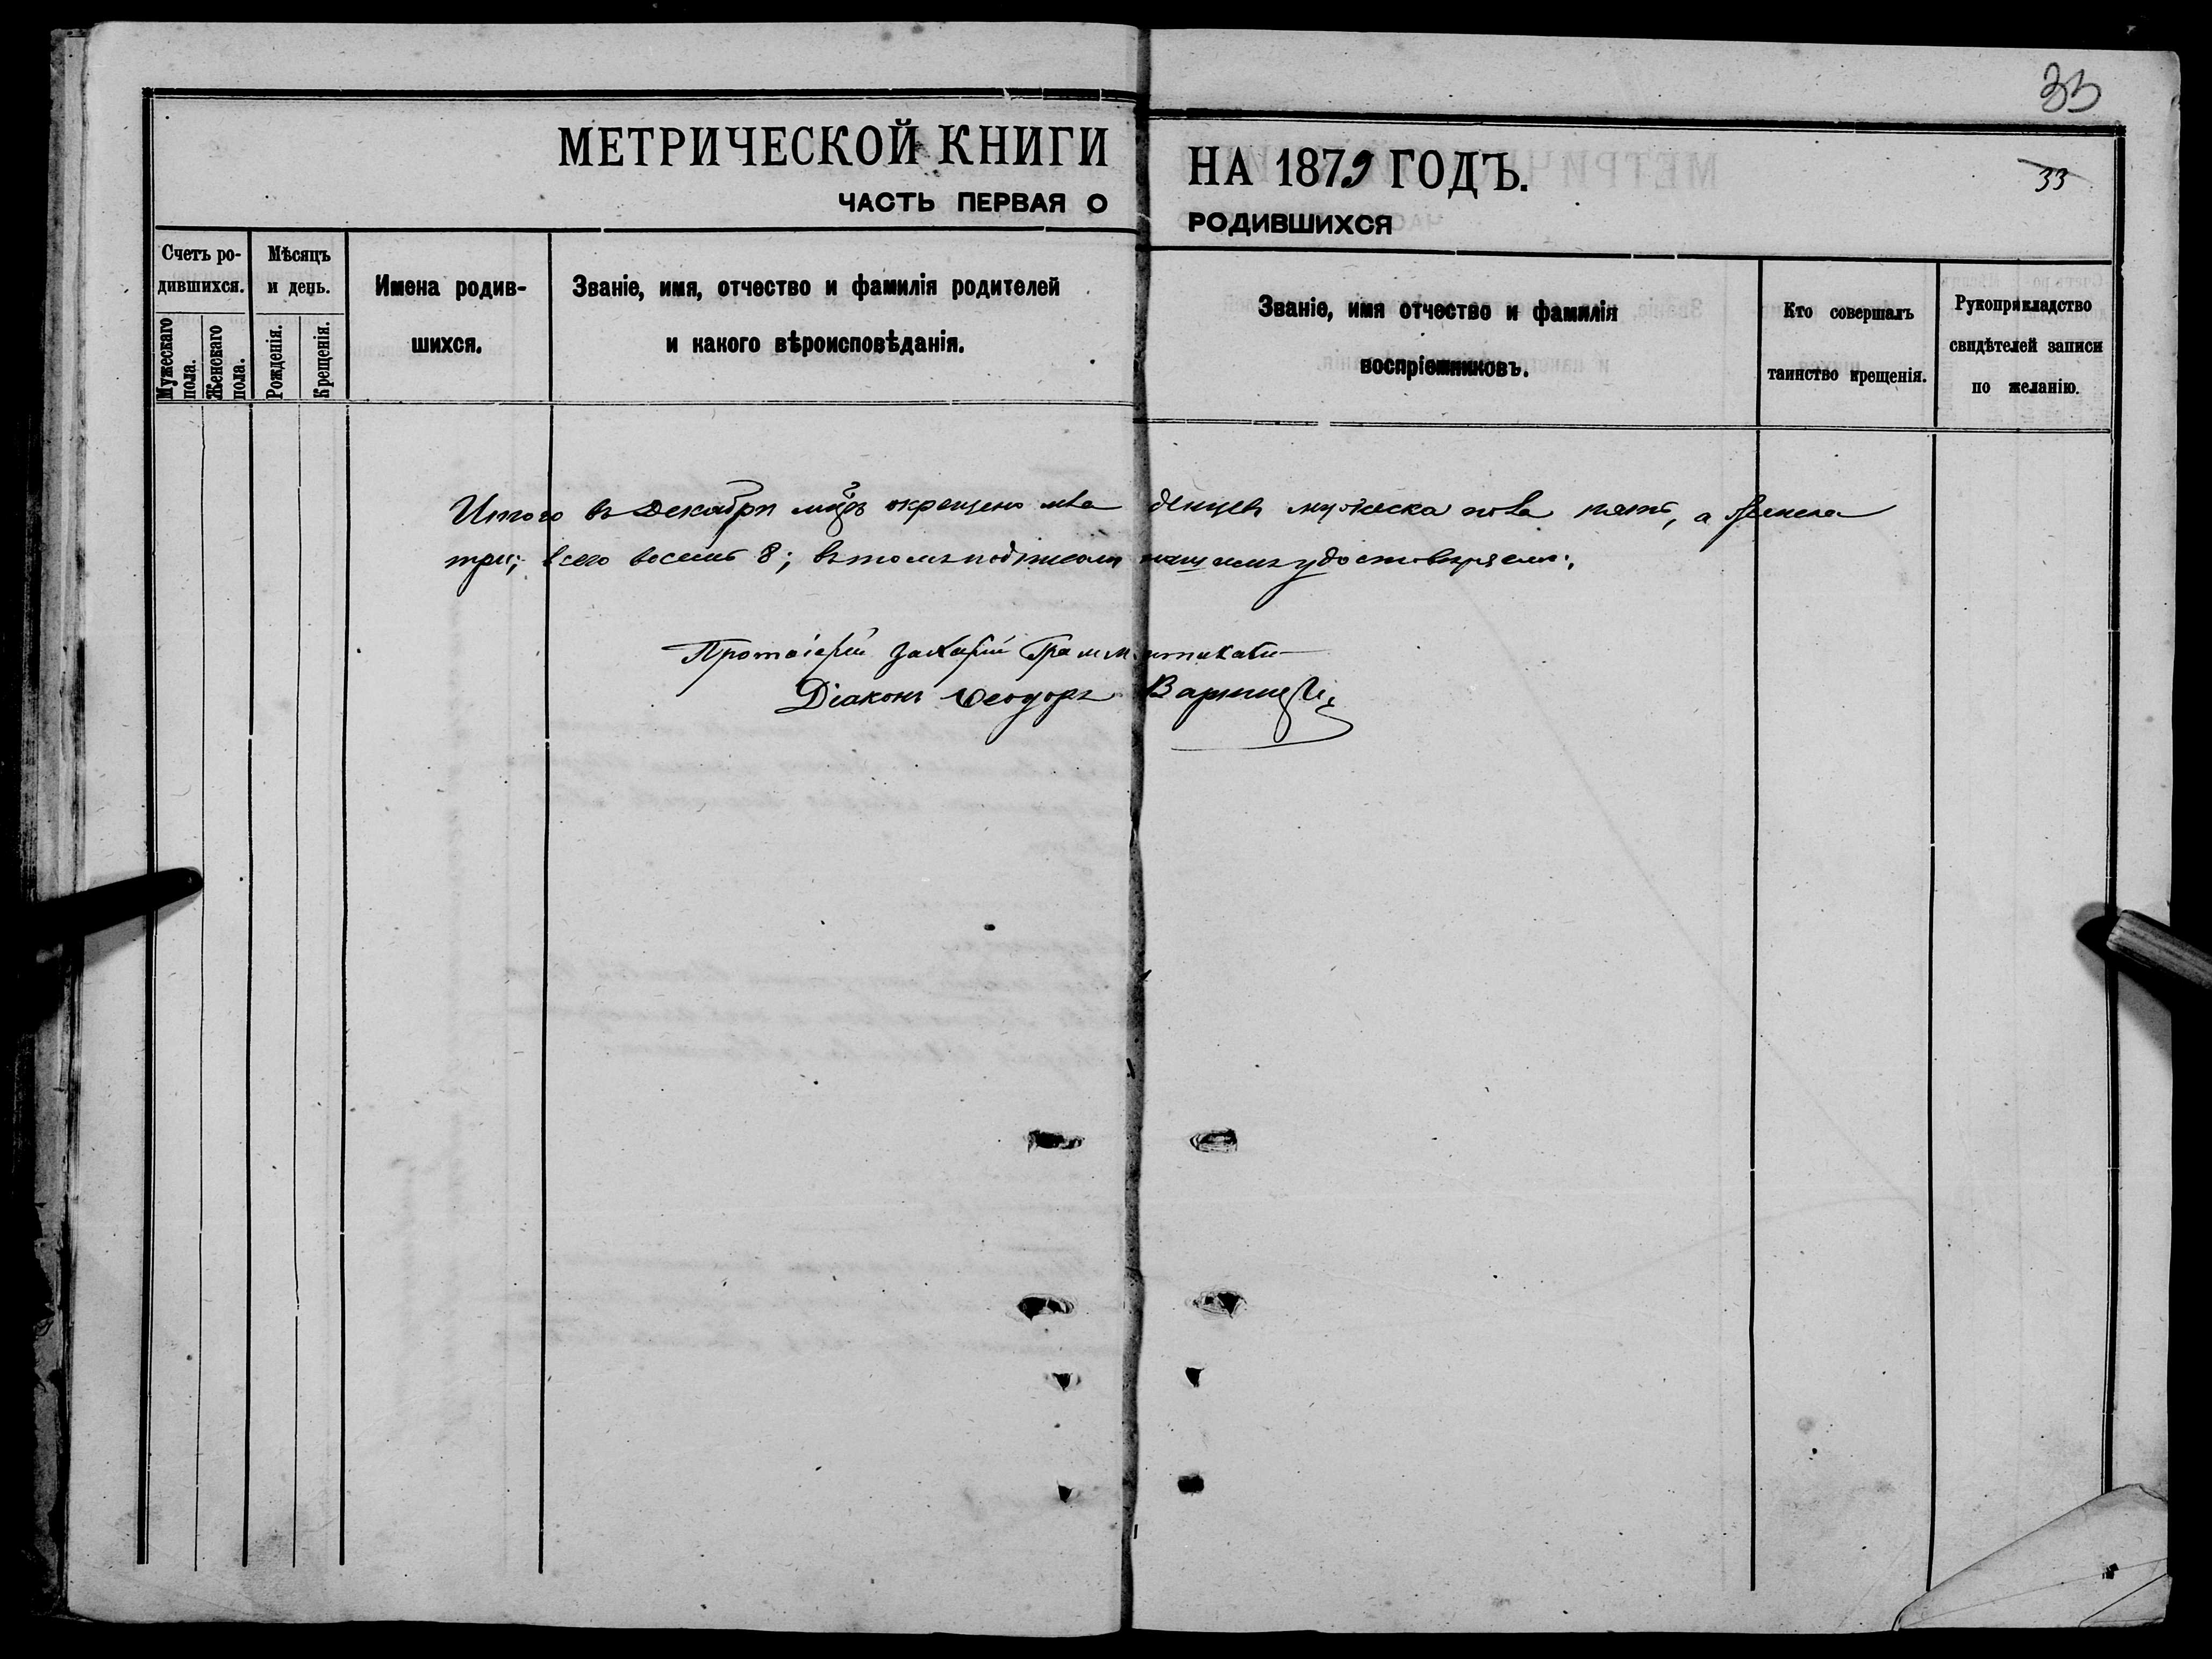 33
МЕТРИЧЕСКОЙ КНИГИ НА 1879 ГОДЪ.
33
ЧАСТЬ ПЕРВАЯ О РОДИВШИХСЯ
Счетъ родившихся.
Мужескаго пола.
Женскаго пола.
Мѣсяцъ и день.
Рожденія.
Крещенія.
Имена родив-
шихся.
Званіе, имя, отчество и фамилія родителей
и какого вѣроисповѣданія.
Званіе, имя отчество и фамилія
воспріемниковъ.
Кто совершалъ
таинство крещенія.
Рукоприкладство
свидѣтелей записи
по желанію.
Итого въ Декабрѣ мцѣ окрещено младенцевъ мужеска пола пять, а женска
три; всего восемь 8; въ томъ подписомъ нашимъ удостовѣряемъ:
Протоіерей Захарій
Діаконъ Ѳеодоръ